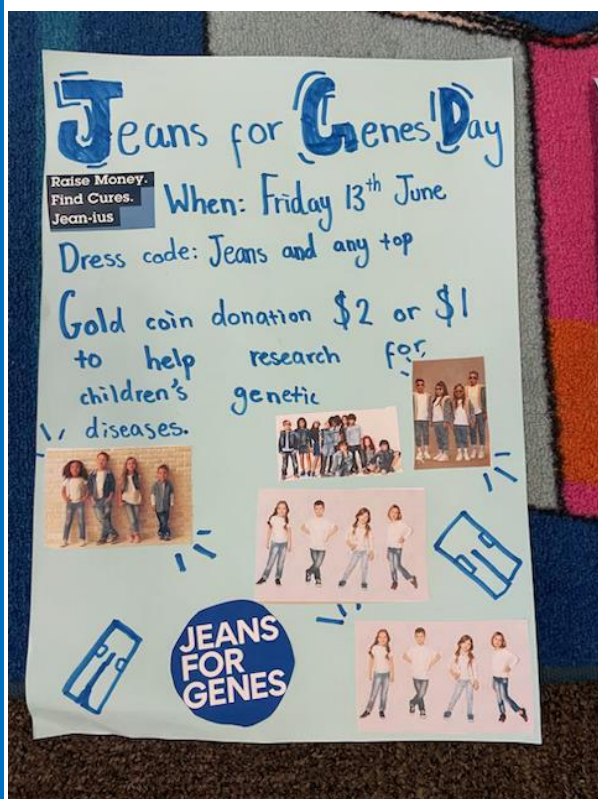 Jeans for Genes Day
Raise Money.
Find Cures.
Jean-ius
When: Friday 13th June
Dress code: Jeans and any top
Gold coin donation $2 or $1
to help research for
children's genetic
diseases.
JEANS
FOR
GENES